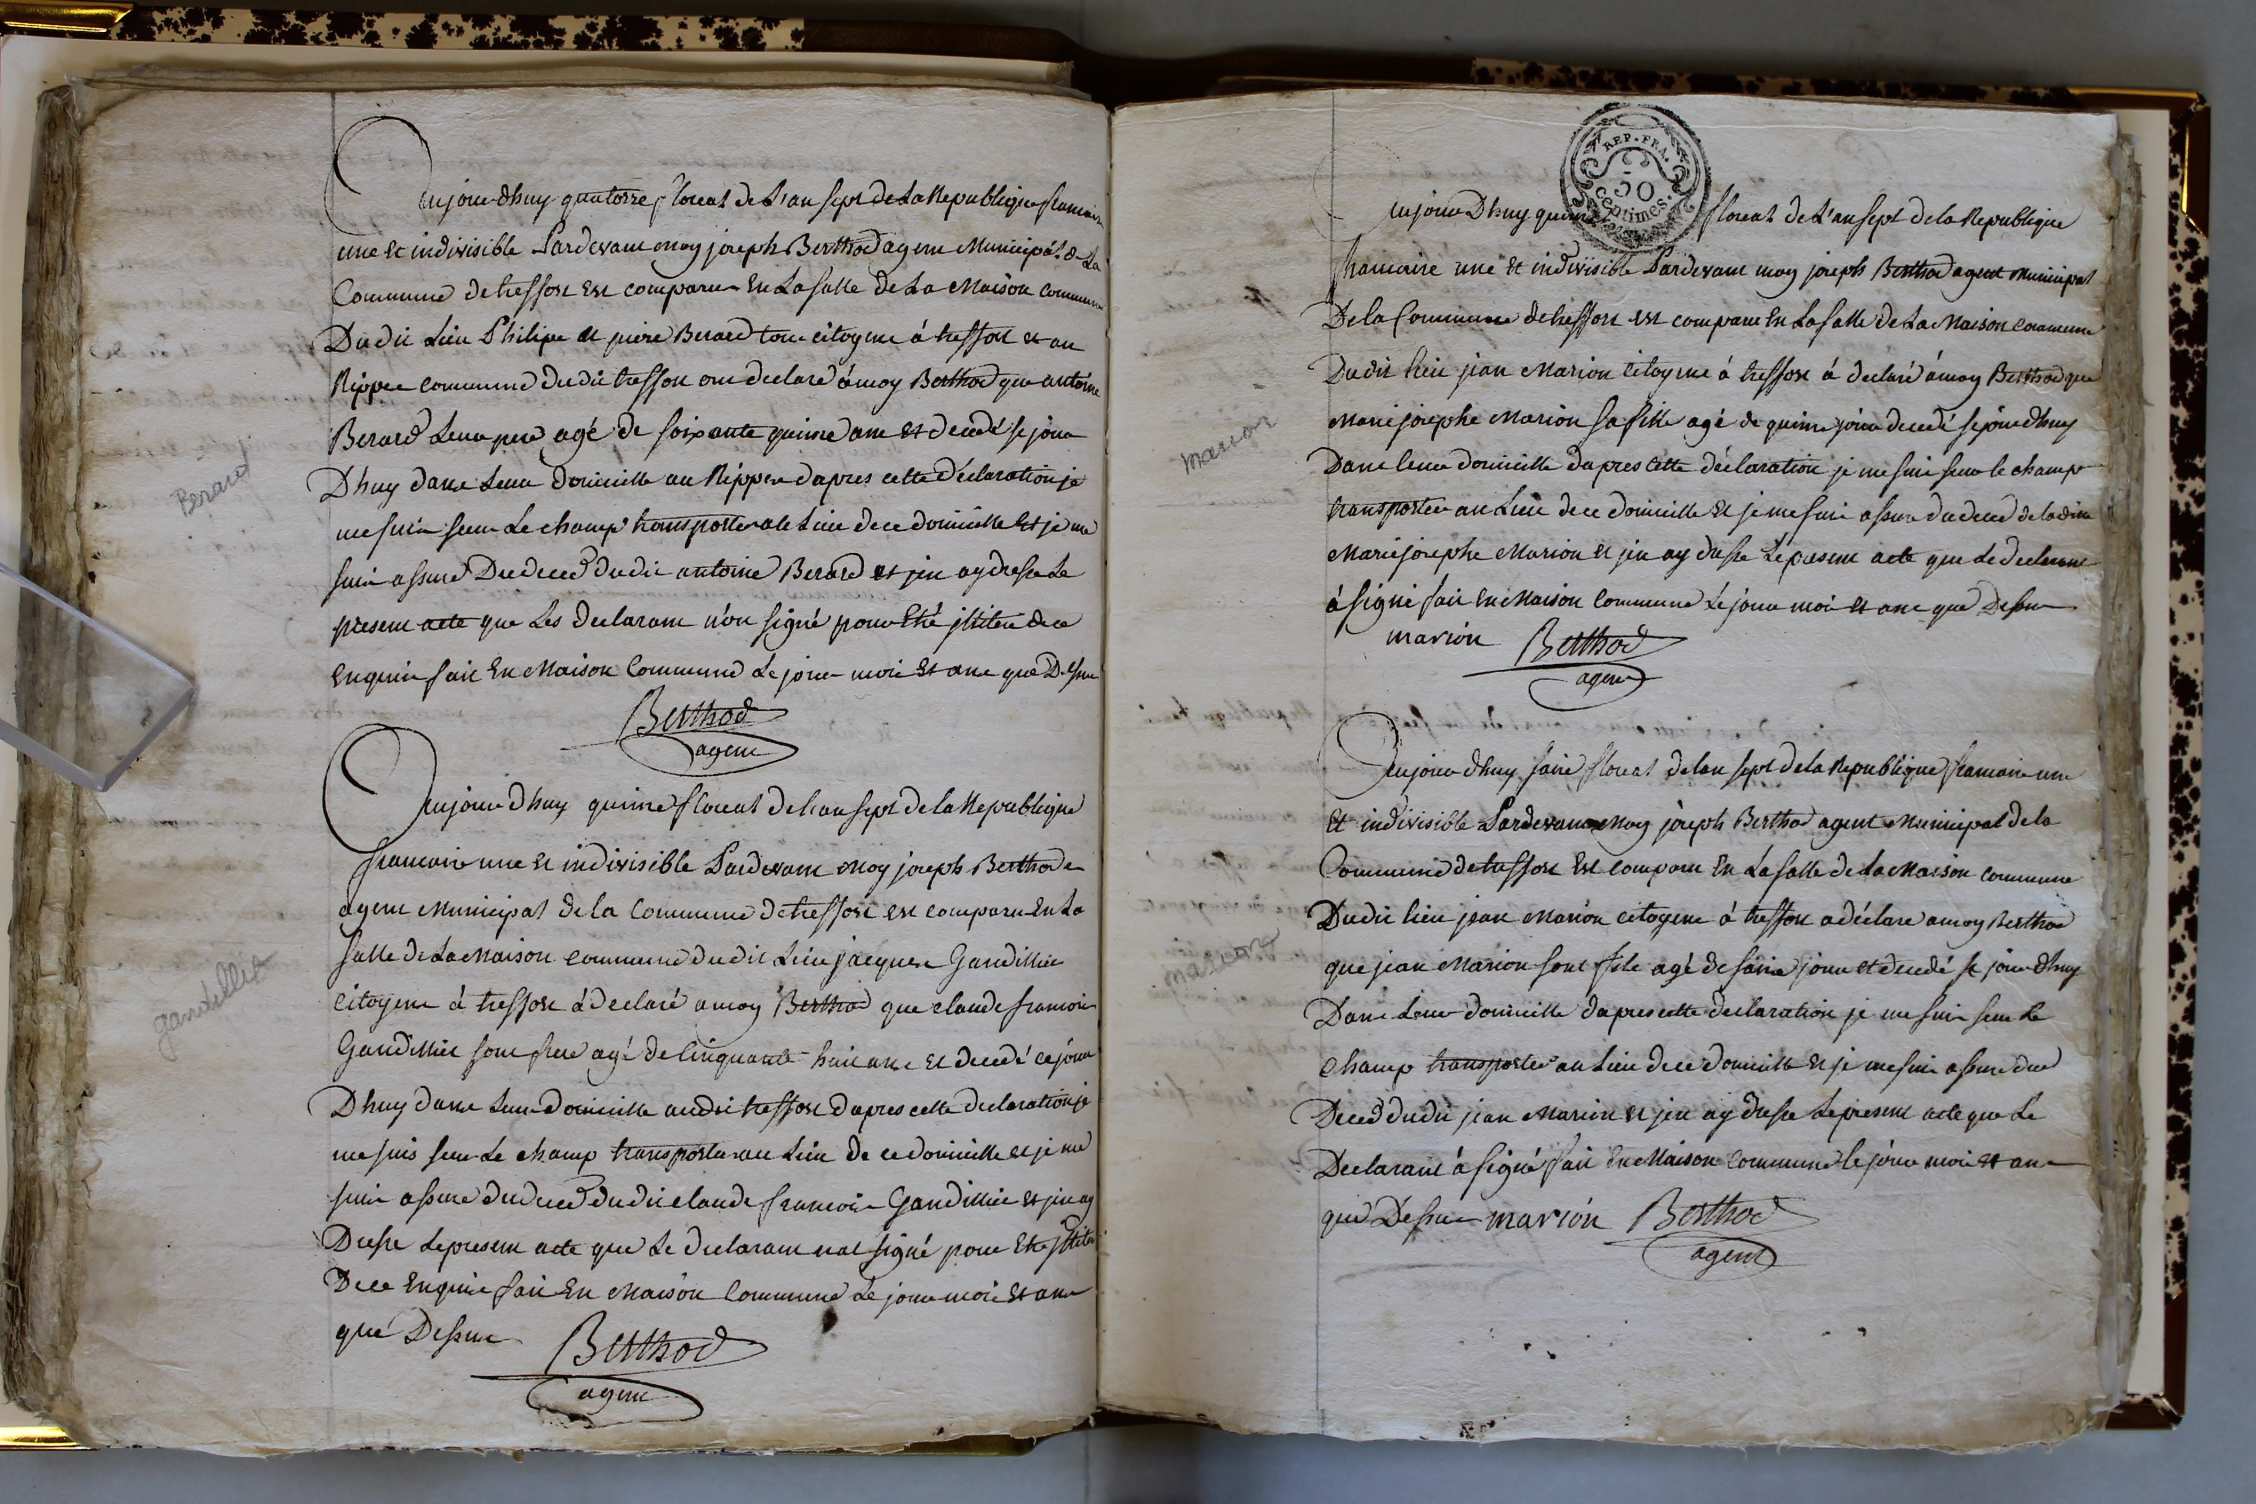 Berard
Aujourdhuy quatorze floreal de L'an sept de La Republique francaise
une Et indivisible Pardevant moy joseph Berthod agent Municipal de La
Commune de treffort Est comparu En La salle de La Maison commune
Dudit Lieu Philipe et piere Berard tous citoyens á treffort et au
Rippes commune dudit treffort ont declaré á moy Berthod que antoine
Berard Leur pere agé de soixante quinze ans Et decedé se jour
Dhuy dans Leur domicille au Rippes dapres cette déclaration je
me suis sur Le champ transporter ale Lieu de ce domicille Et je me
suis assure Du deced dudit antoine Berard et jen ay dresse Le
present acte que Les declarant n'on signé pour Etre jlliteré de ce
Enquis fait En Maison Commune Le jour mois Et ans que Dessus
Berthod
agent
gandillet
Aujourdhuy quinze floreal de L'an sept de la Republique
francaise une Et indivisible Pardevant Moy joseph Berthod
agent Municipal de la Commune de treffort est comparu En La
salle de La Maison commune dudit Lieu jacques Gandillier
Citoyens á treffort á declaré a moy Berthod que claude francois
Gandillier sont frere agé de Cinquante huit ans et decedé ce jour
Dhuy dans Leur domicille audit treffort dapres cette declaration je
me suis sur Le champ transporter au Lieu de ce domicille et je me
suis assure du deced dudit claude francois Gandillier et jen ay
Dresse Le present acte que Le declarant nat signé pour Etre jlliteré
De ce Enquis fait En Maison Commune Le jour mois Et ans
que Dessus Berthod
agent
REP. FRA.
50
centimes.
marion
Aujour Dhuy quinze floreal de L'an sept de la Republique
francaise une Et indivisible Pardevant moy joseph Berthod agent Municipal
De la Commune de treffort est comparu En La salle de La Maison commune
Dudit Lieu jean Marion Citoyens á treffort á declaré á moy Berthod que
Marie josephe Marion sa fille agé de quinze jour decedé se jour dhuy
Dans leur domicille dapres cette déclaration je me suis sur le champ
transporter au Lieu de ce domicille Et je me suis assure du deced de ladite
Marie josephe Marion et jen ay dresse Le present acte que Le declarant
á signé fait En Maison Commune Le jour mois et ans que Dessus
marión Berthod
agent
marion
Aujour dhuy saize floreal de lan sept de la Republique francaise une
Et indivisible Pardevant Moy joseph Berthod agent Municipal de la
Commune de treffort Est comparu En La salle de La Maison commune
Dudit lieu jean Marion citoyens á treffort a déclare a moy Berthod
que jean Marion sont fils agé de saize jour et decedé se jour dhuy
Dans Leur domicille dapres cette declaration je me suis sur Le
champ transporter au Lieu de ce domicille Et je me suis assure du
Deced dudit jean Marion et jen ay dresse Le present acte que Le
Declarant á signé fait En Maison Commune le jour mois et ans
que Déssus marión Berthod
agent